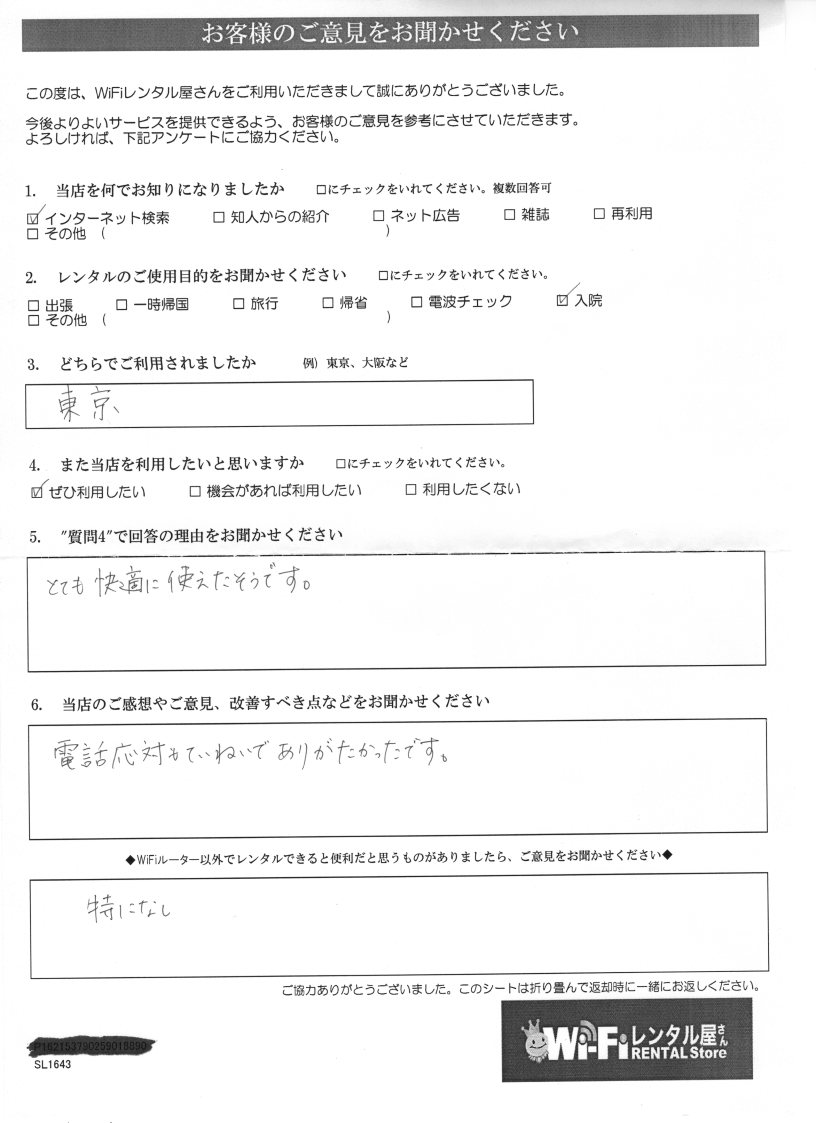 お客様のご意見をお聞かせください
この度は、WiFiレンタル屋さんをご利用いただきまして誠にありがとうございました。
今後よりよいサービスを提供できるよう、お客様のご意見を参考にさせていただきます。
よろしければ、下記アンケートにご協力ください。
1. 当店を何でお知りになりましたか □にチェックをいれてください。複数回答可
☑ インターネット検索 □ 知人からの紹介 □ ネット広告 □ 雑誌 □ 再利用
□ その他 ( )
2. レンタルのご使用目的をお聞かせください □にチェックをいれてください。
□ 出張 □ 一時帰国 □ 旅行 □ 帰省 □ 電波チェック ☑ 入院
□ その他 ( )
3. どちらでご利用されましたか 例) 東京、大阪など
東京、
4. また当店を利用したいと思いますか □にチェックをいれてください。
☑ ぜひ利用したい □ 機会があれば利用したい □ 利用したくない
5. "質問4"で回答の理由をお聞かせください
とても快適に使えたそうです。
6. 当店のご感想やご意見、改善すべき点などをお聞かせください
電話応対もていねいでありがたかったです。
◆WiFiルーター以外でレンタルできると便利だと思うものがありましたら、ご意見をお聞かせください◆
特になし
ご協力ありがとうございました。このシートは折り畳んで返却時に一緒にお返しください。
SL1643
Wi-Fiレンタル屋さん
RENTAL Store